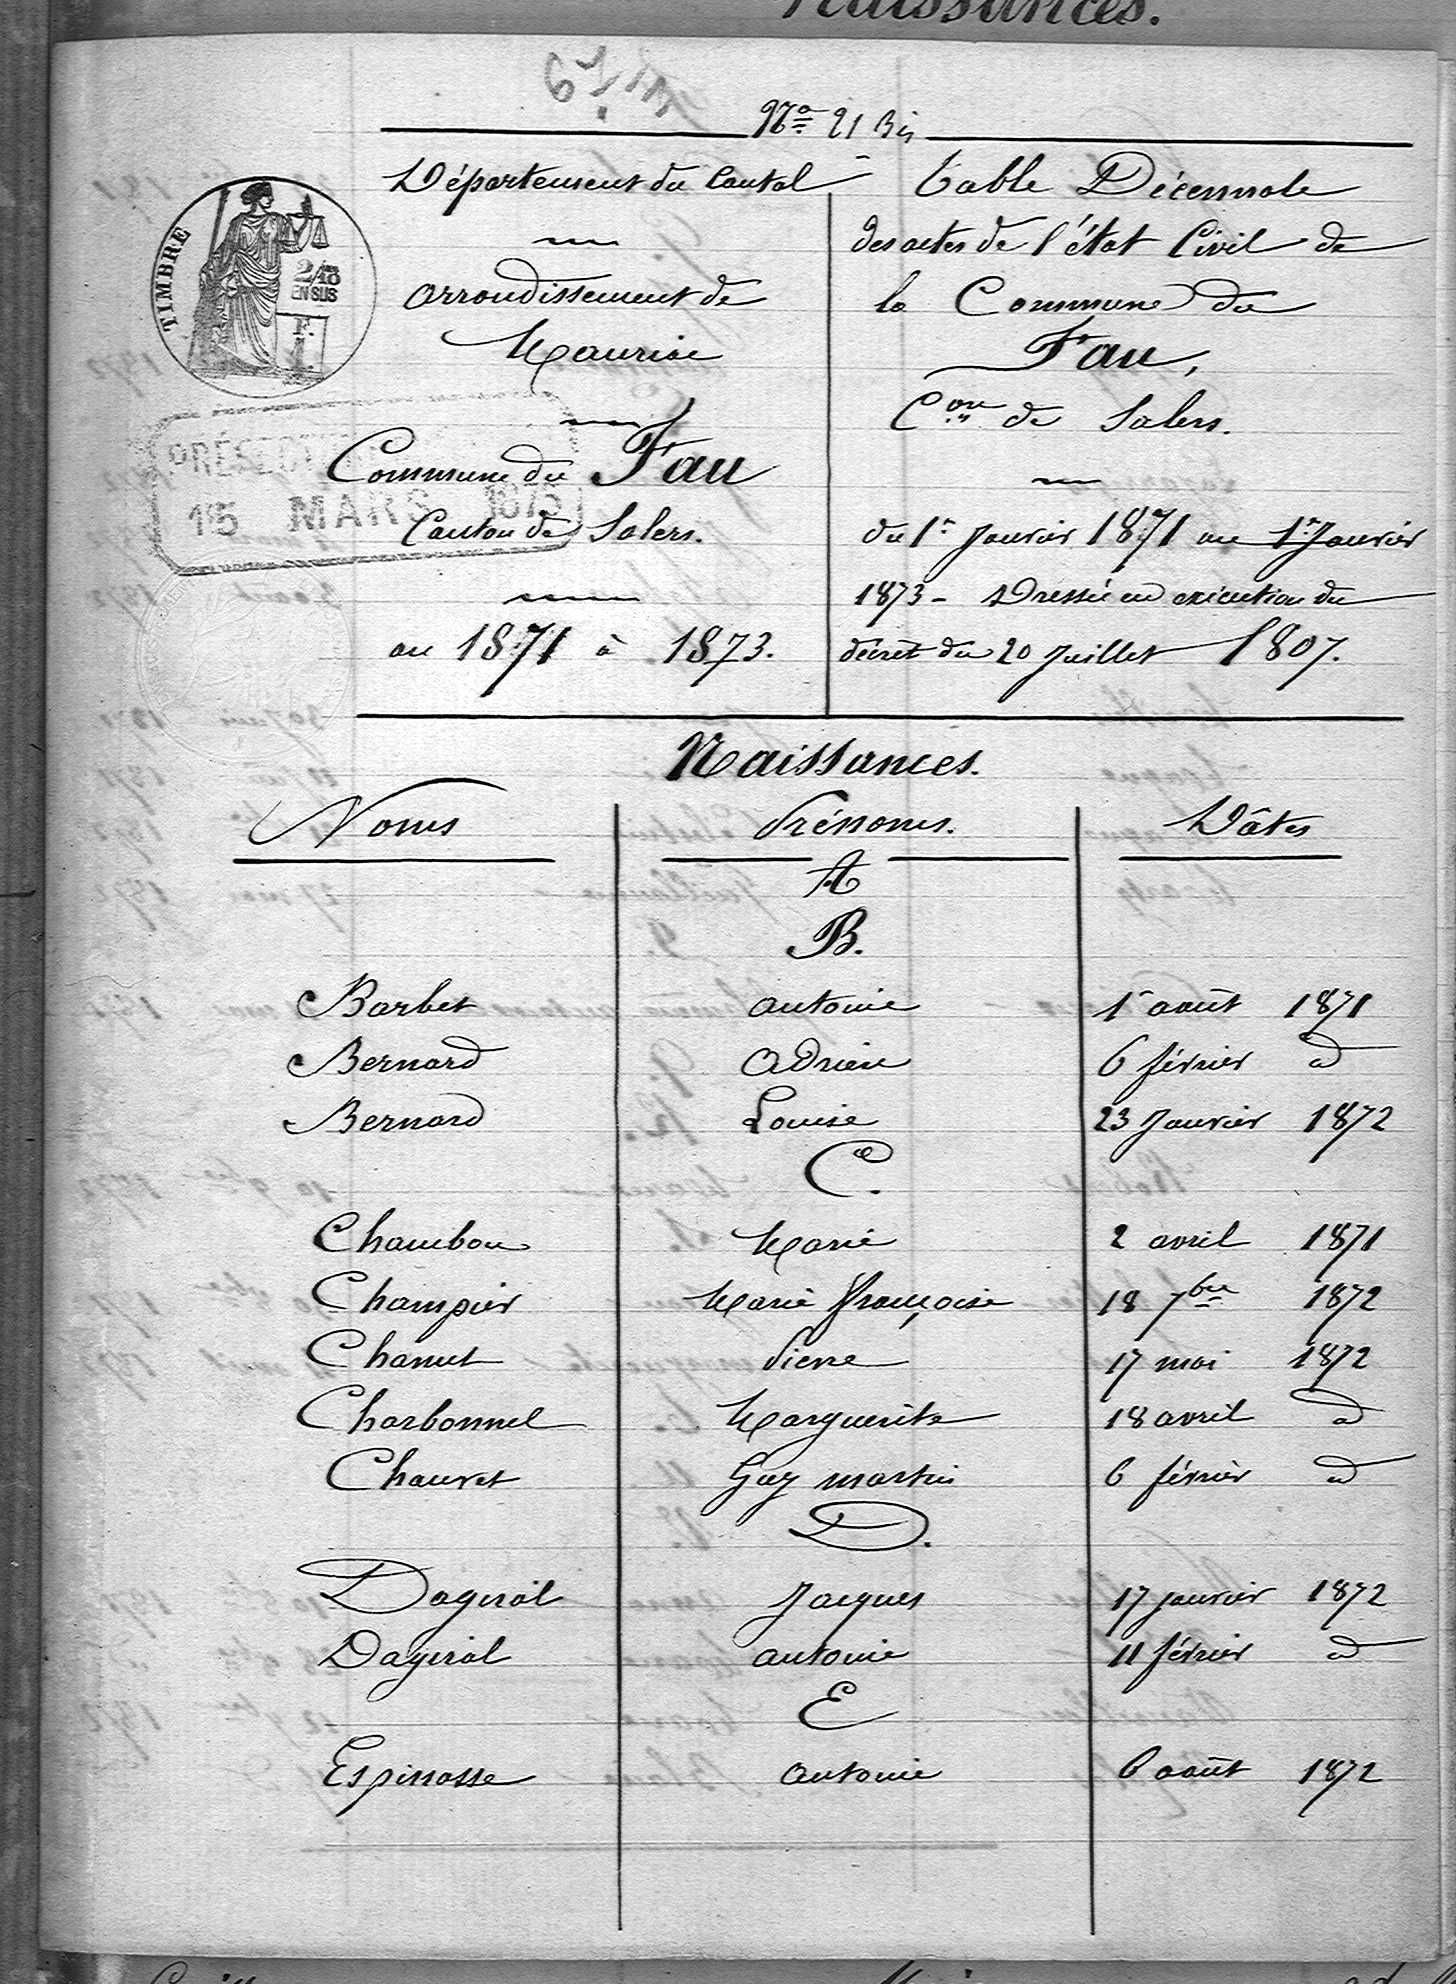 Naissances.
No 21 Bis
Département du Cantal
Arrondissement de
Mauriac
Commune du Fau
Canton de Salers.
au 1871 à 1873.
Table Décennale
des actes de l'état Civil de
la Commune du
Fau,
Con de Salers.
du 1r Janvier 1871 au 1r Janvier
1873 - Dressée en exécution du
décrêt du 20 Juillet 1807.
TIMBRE
2/10 EN SUS
PRÉFECTURE
15 MARS 1875
Naissances.
Noms Prénoms. Dâtes
A
B.
Barbet Antoine 1r août 1871
Bernard Adrien 6 février d
Bernard Louise 23 Janvier 1872
C.
Chambon Marie 2 avril 1871
Champier Marie Françoise 18 7bre 1872
Chanut Pierre 17 mai 1872
Charbonnel Marguerite 18 avril d
Chauvet Guy martin 6 février d
D.
Dagiral Jacques 17 janvier 1872
Dagiral antoine 11 février d
E
Espinasse Antoine 6 août 1872